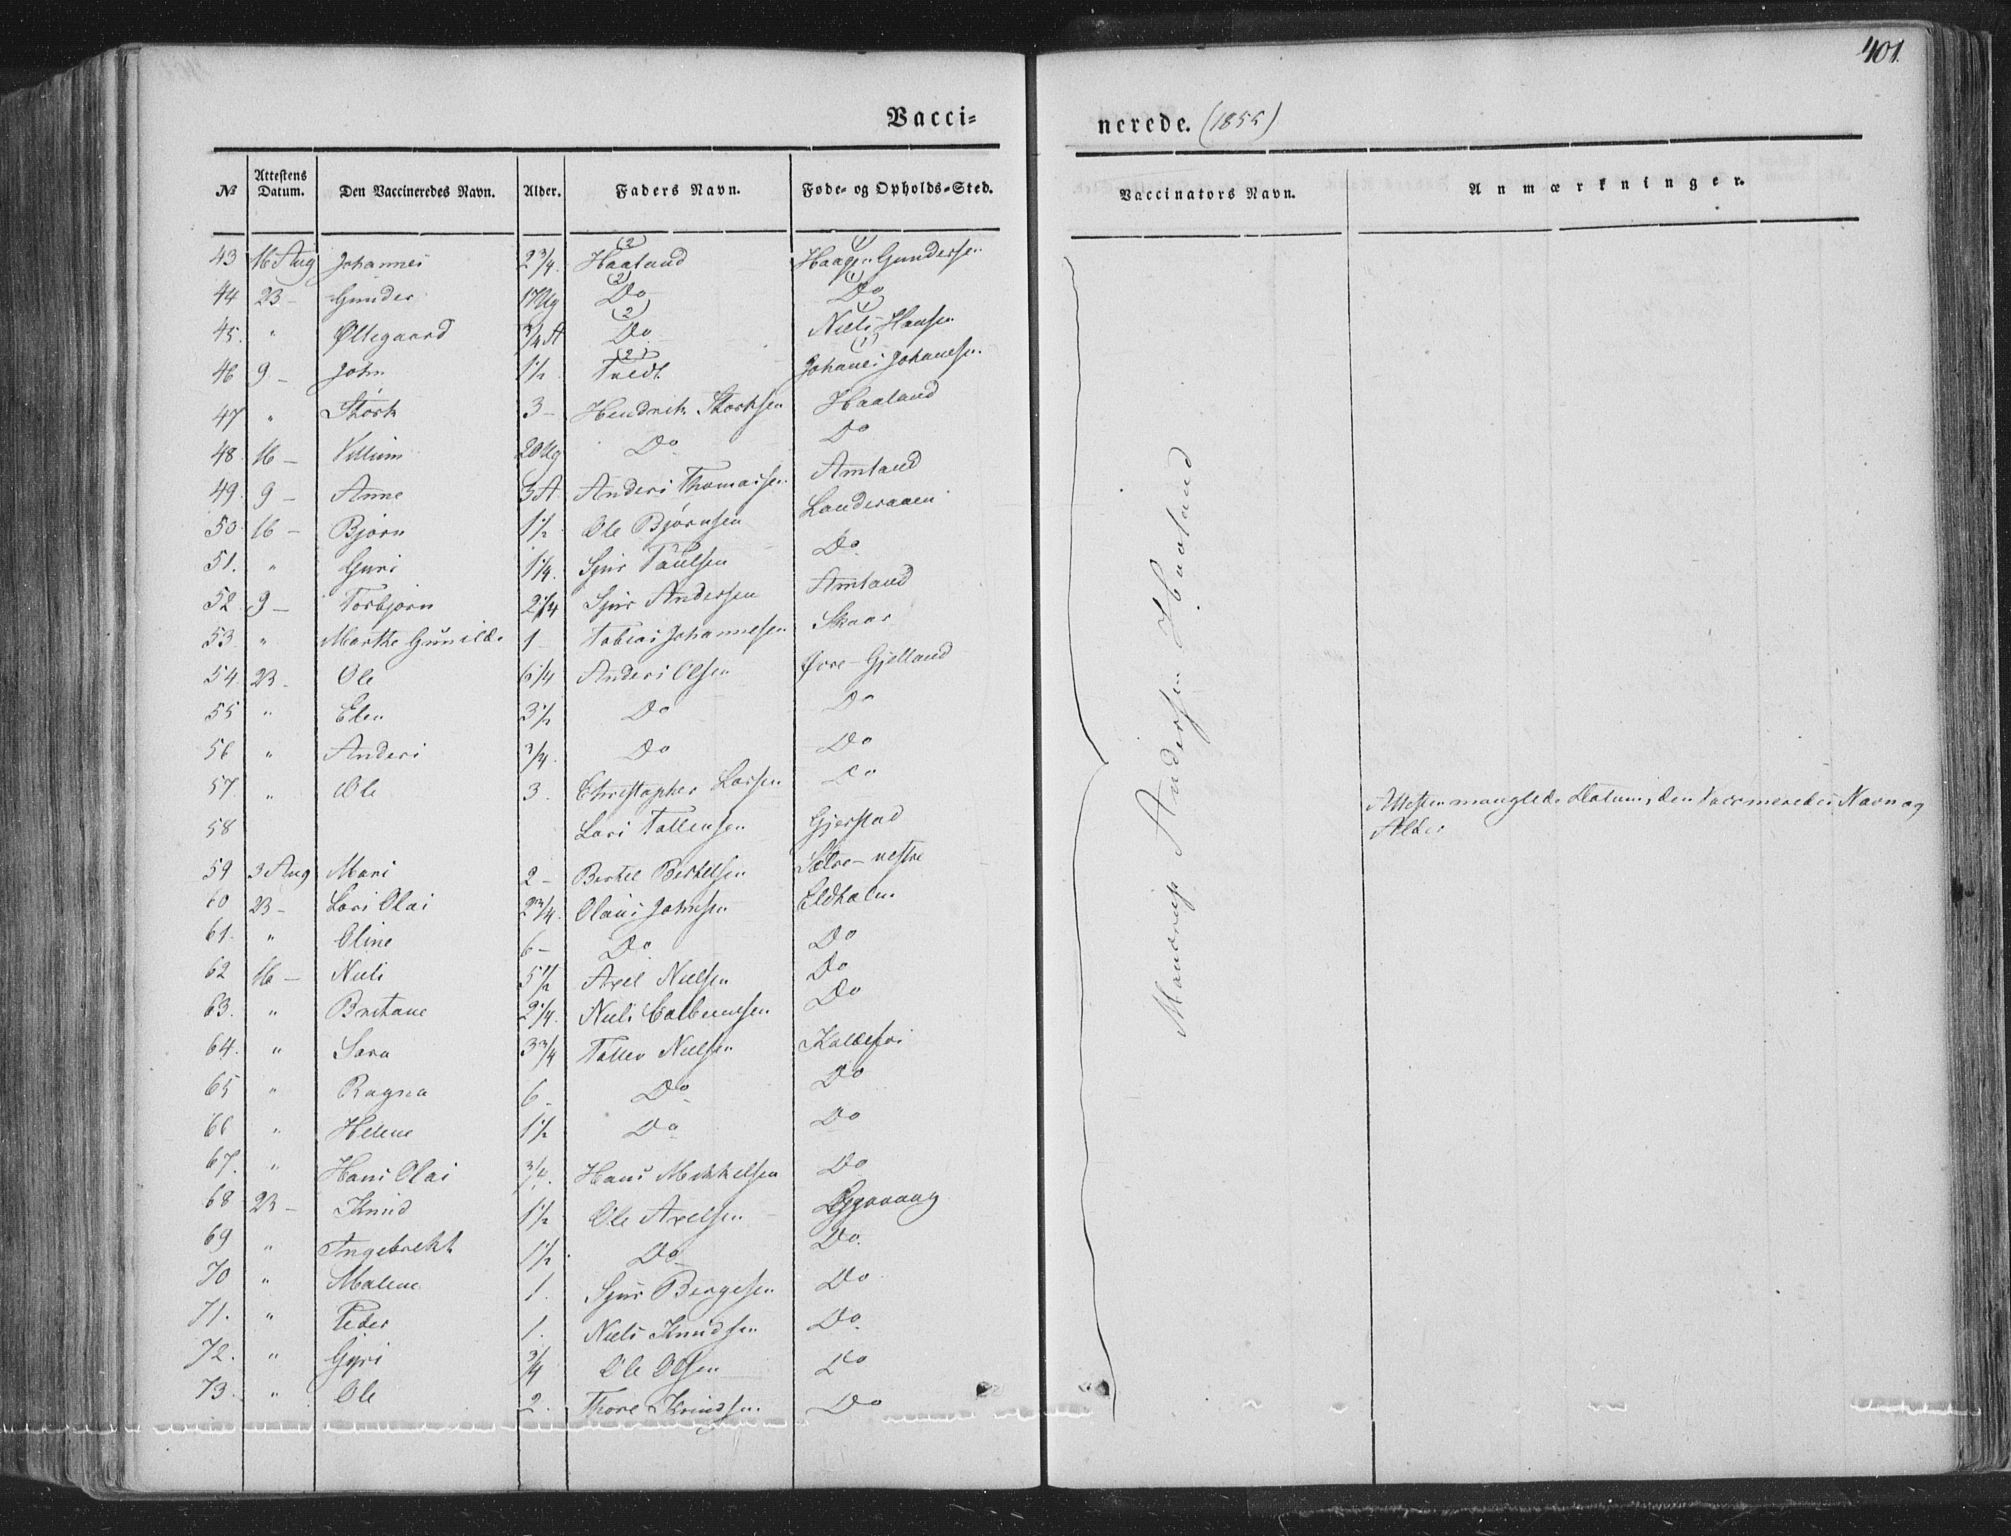 401.
Vacci-
nerede. (1855)
No Attestens Datum. Den Vaccineredes Navn. Alder. Faders Navn. Føde- og Opholds-Sted. Vaccinators Navn. Anmærkninger.
43 16 Aug Johannes 2 3/4. (2) Haaland (1) Haagen Gundersen
44 23 - Gunder 17 Ug (2) Do (1) Do
45. " Øllegaard 3/4 A (2) Do (1) Niels Hansen
46 9 - John 1 1/2 (2) Tvedt (1) Johanes Johanesen
47 " Stork 3 - Hendrik Storksen Haaland
48. 16 - Villum 20 Ug Do Do
49. 9 - Anne 3 A Anders Thomassen Amland
50. 16 - Bjørn 1 1/2 Ole Bjørnsen Landeraaen
51. " Guri 1 1/4. Sjur Paulsen Do
52 9 - Torbjørn 2 1/4 Sjur Andersen Amland
53 " Marthe Gunilde 1 Tobias Johannesen Skaar
54. 23 - Ole 6 1/4 Anders Olsen Øvre-Gjelland
55 " Elen 3 1/2 Do Do
56 " Anders 3/4. Do Do
57 " Ole 3. Christopher Larsen Do
58 Lars Tollevsen Gjerstad Attesten manglede Datum, den Vaccineredes Navn og
Alder
59 3 Aug Mari 2 - Bertel Bertelsen Sætre-vestre
60 23 - Lars Olai 2 3/4. Olaus Johnsen Eldholm
61. " Oline 6 - Do Do
62 16 - Niels 5 1/2 Axel Nielsen Do
63. " Britane 2 1/4. Niels Do
64. " Sara 3 3/4 Tollev Nielsen
65 " Ragna 6 - Do Do
66 " Helene 1 1/2 Do Do
67. " Hans Olai 3/4. Hans Mikkelsen Do
68 23 - Knud 1 1/2 Ole Axelsen
69 " Ingebrekt 1 1/2. Do Do
70 " Malene 1. Sjur Bergesen Do
71. " Peder 1. Niels Knudsen Do
72. " Gyri 3/4 Ole Olsen Do
73. " Ole 2. Thore Knudsen Do
Andersen Haaland